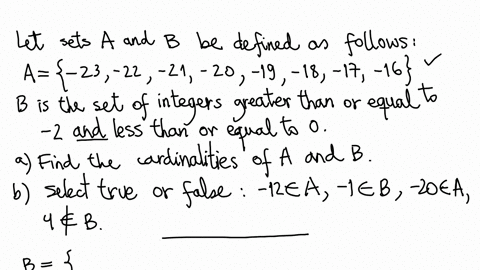 Let sets A and B be defined as follows:
A={-23,-22,-21,-20,-19,-18,-17,-16} ✓
B is the set of integers greater than or equal to
-2 and less than or equal to 0.
a) Find the cardinalities of A and B.
b) Select true or false: -12∈A, -1∈B, -20∈A,
4∉B.
B = {